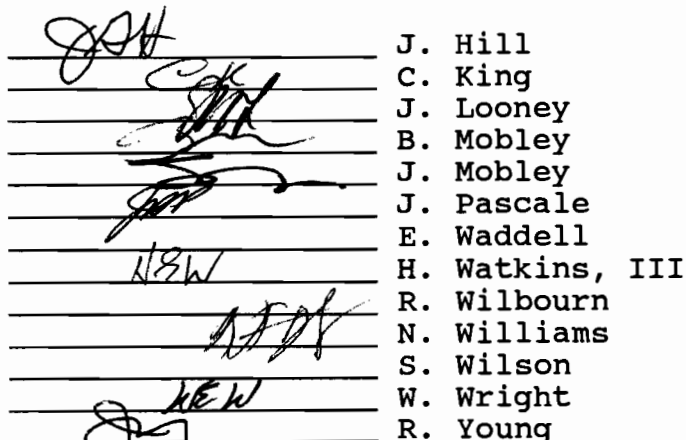 JSH J. Hill
CGK C. King
J. Looney
B. Mobley
J. Mobley
J. Pascale
E. Waddell
HEW H. Watkins, III
R. Wilbourn
N. Williams
S. Wilson
WEW W. Wright
R. Young